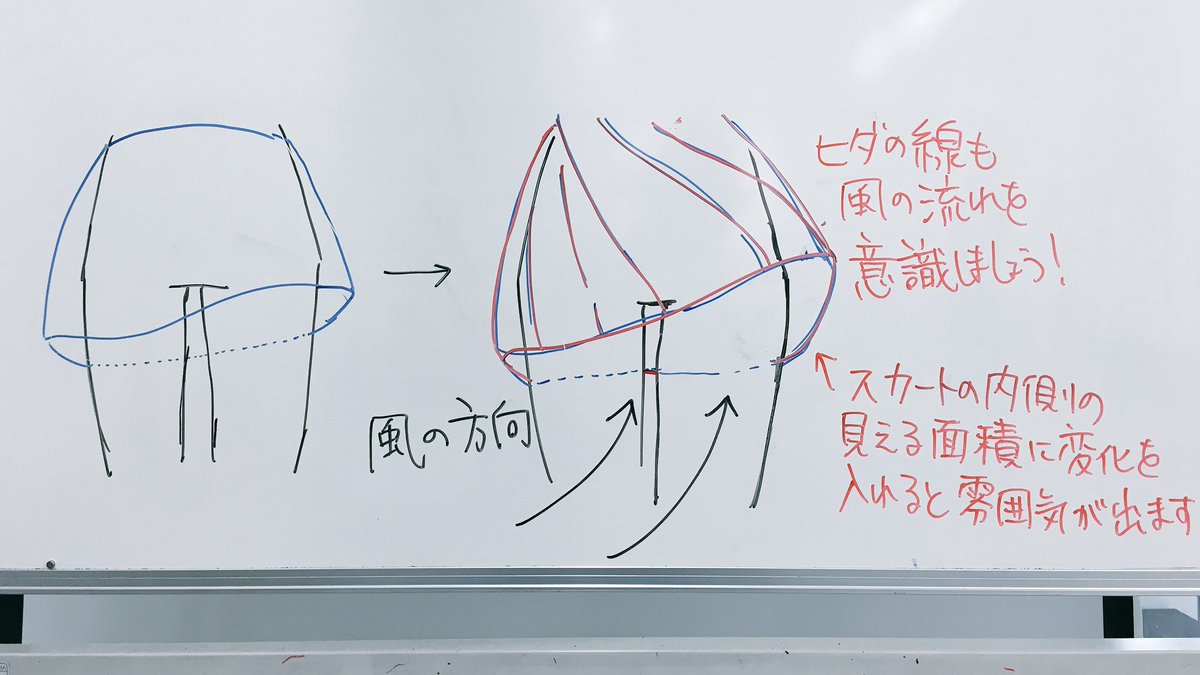 ヒダの線も
風の流れを
意識しましょう!
風の方向
スカートの内側の
見える面積に変化を
入れると雰囲気が出ます